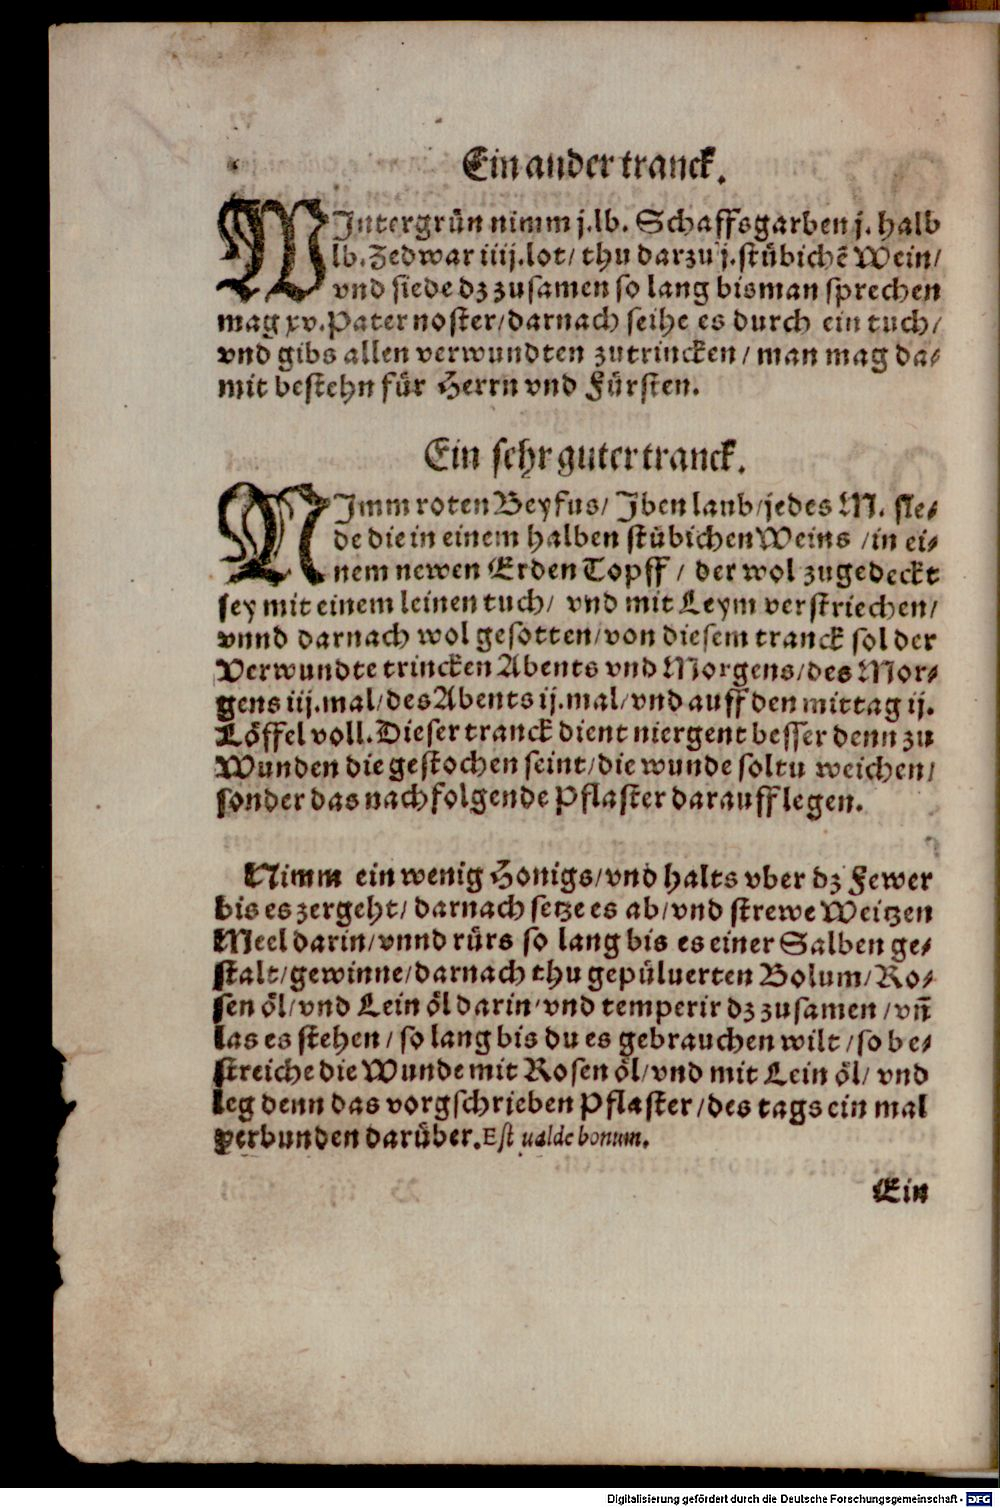 Ein ander tranck.
WIntergrün nimm j.lb. Schaffsgarben j. halb
lb. Zedwar iiij.lot/ thu darzu j.stübichẽ Wein/
vnd siede dz zusamen so lang bis man sprechen
mag xv. Pater noster/ darnach seihe es durch ein tuch/
vnd gibs allen verwundten zutrincken/ man mag da-
mit bestehn für Herrn vnd Fürsten.
Ein sehr guter tranck.
NImm roten Beyfus/ Iben laub/ jedes M. sie-
de die in einem halben stübichen Weins /in ei-
nem newen Erden Topff / der wol zugedeckt
sey mit einem leinen tuch/ vnd mit Leym verstriechen/
vnnd darnach wol gesotten/ von diesem tranck sol der
Verwundte trincken Abents vnd Morgens/ des Mor-
gens iij.mal/ des Abents ij.mal/ vnd auff den mittag ij.
Löffel voll. Dieser tranck dient niergent besser denn zu
Wunden die gestochen seint/ die wunde soltu weichen/
sonder das nachfolgende Pflaster darauff legen.
Nimm ein wenig Honigs/ vnd halts vber dz Fewer
bis es zergeht/ darnach setze es ab/ vnd strewe Weitzen
Meel darin/ vnnd rürs so lang bis es einer Salben ge-
stalt/ gewinne/ darnach thu gepüluerten Bolum/ Ro-
sen öl/ vnd Lein öl darin/ vnd temperir dz zusamen / vñ
las es stehen / so lang bis du es gebrauchen wilt / so be-
streiche die Wunde mit Rosen öl/ vnd mit Lein öl/ vnd
leg denn das vorgschrieben Pflaster/ des tags ein mal
verbunden darüber. Est ualde bonum.
Ein
Digitalisierung gefördert durch die Deutsche Forschungsgemeinschaft - DFG